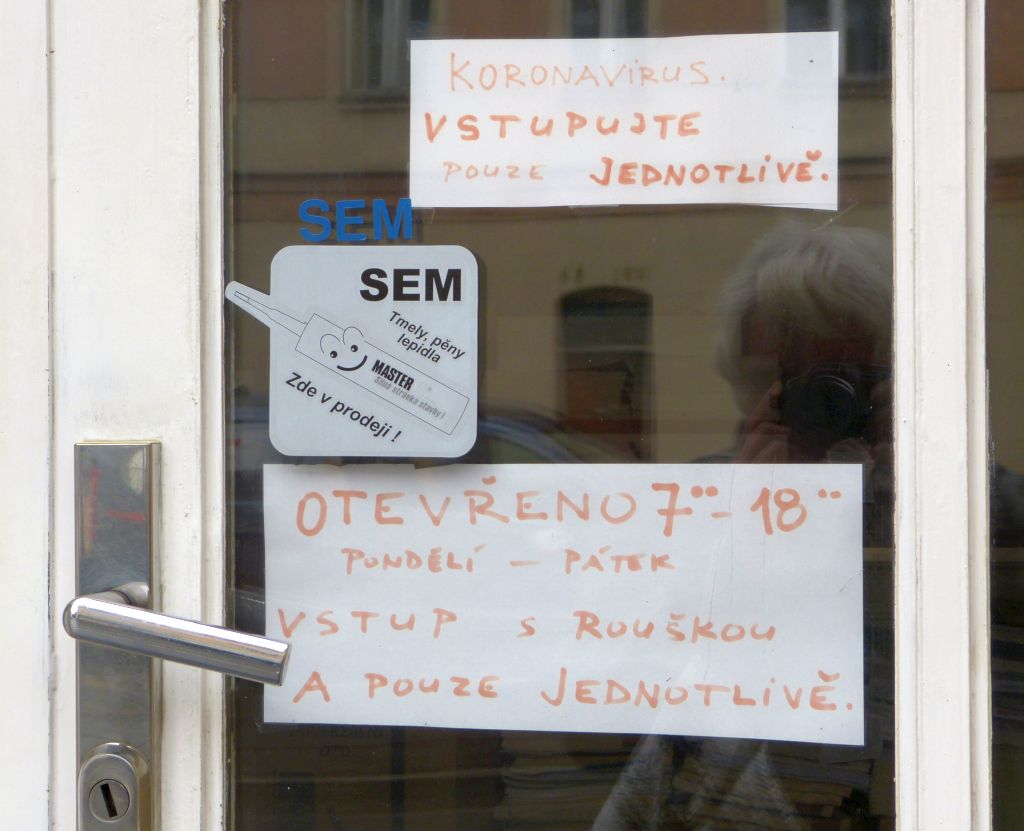 KORONAVIRUS.
VSTUPUJTE
POUZE JEDNOTLIVĚ.
SEM
SEM
Tmely, pěny
lepidla
MASTER
Silná stránka stavby!
Zde v prodeji !
OTEVŘENO 7⁰⁰ - 18⁰⁰
PONDĚLÍ — PÁTEK
VSTUP S ROUŠKOU
A POUZE JEDNOTLIVĚ.